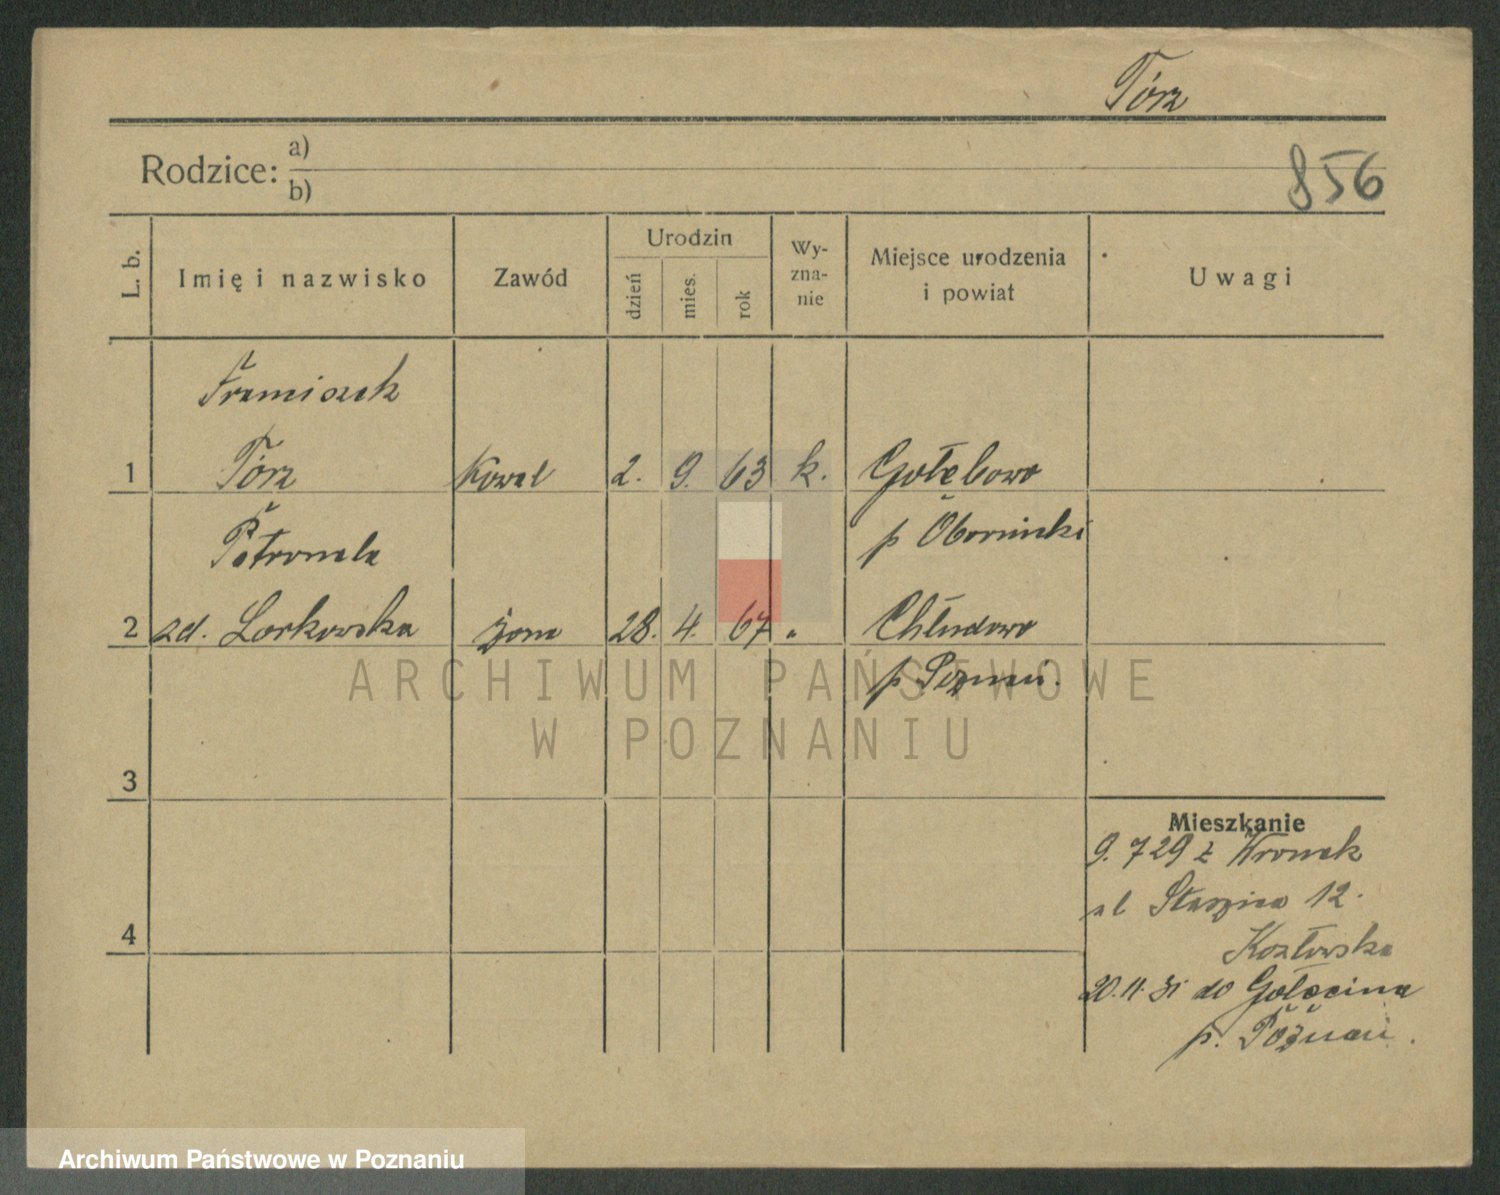 Tórz
Rodzice: a)
b)
856
L. b.
Imię i nazwisko
Zawód
Urodzin
dzień
mies.
rok
Wy-
zna-
nie
Miejsce urodzenia
i powiat
Uwagi
Franciszek
1 Tórz Kowal 2. 9. 63 k. Gołębowo
Petronela p Obornicki
2 zd. Lorkowska żona 28. 4. 67 " Chludowo
p Poznań.
3
4
Mieszkanie
9. 7 29 z Wronek
ul Staszica 12.
Kozłowska
20.11.31 do Golęcina
p. Poznań.
ARCHIWUM PAŃSTWOWE
W POZNANIU
Archiwum Państwowe w Poznaniu